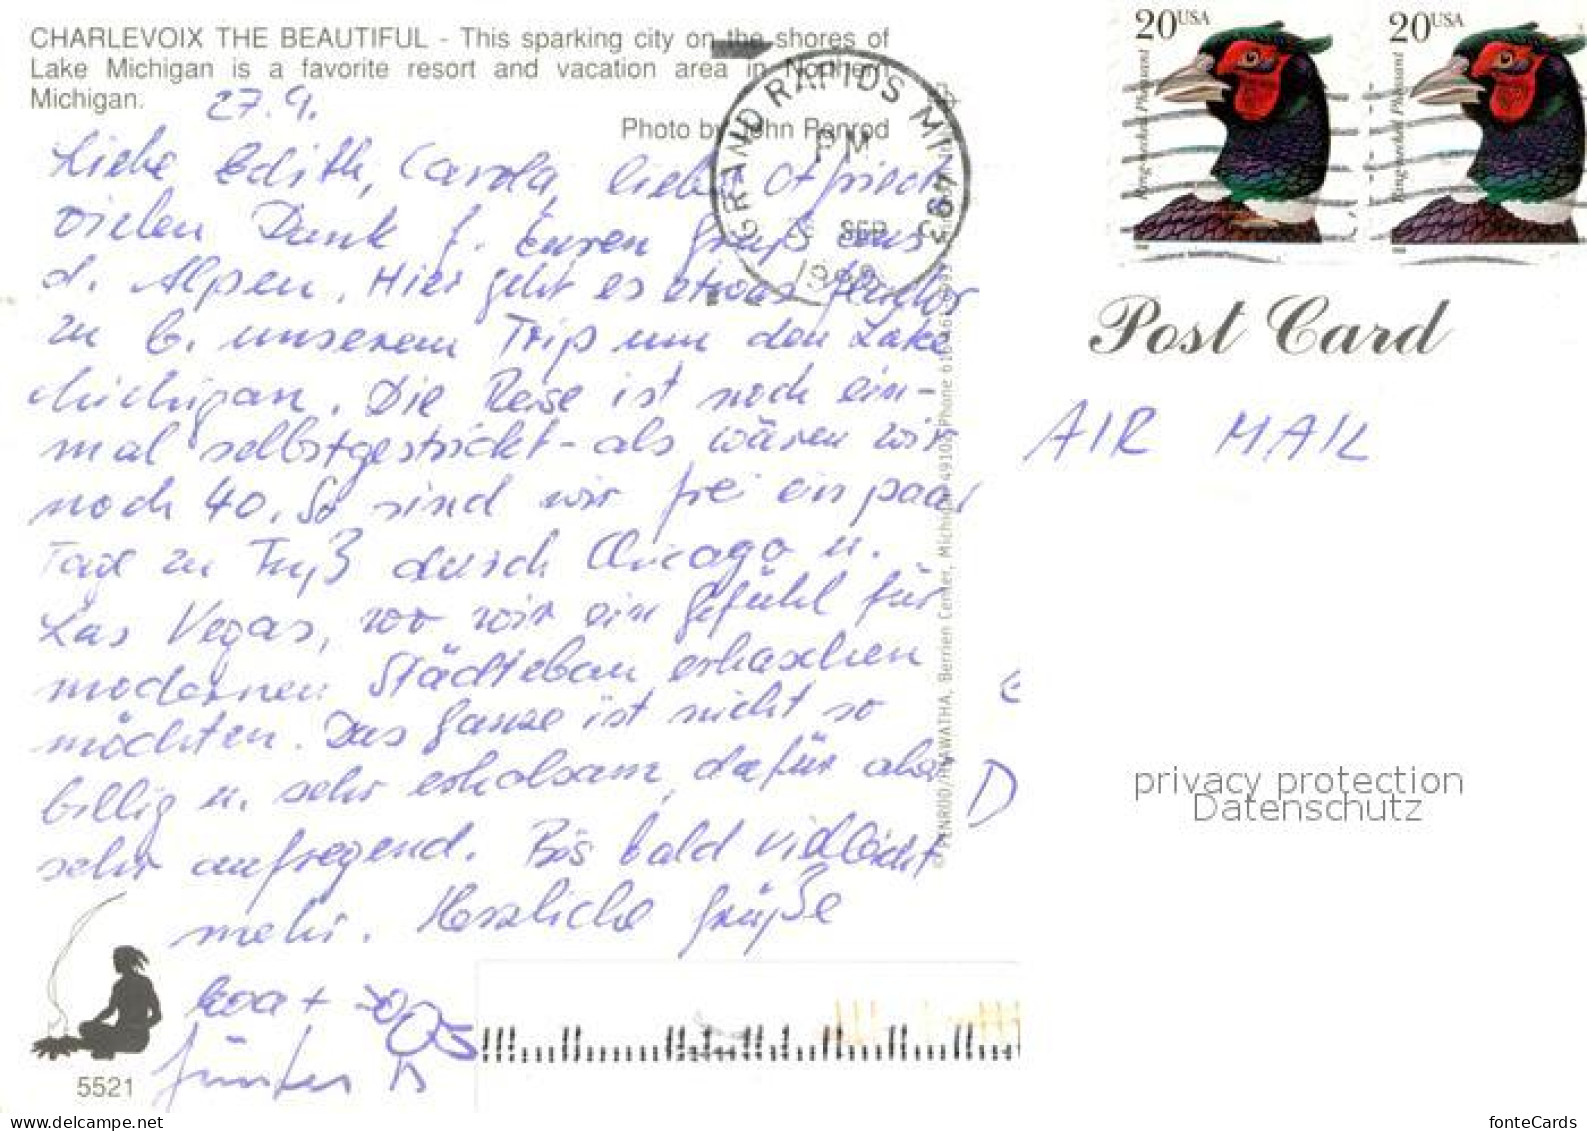 CHARLEVOIX THE BEAUTIFUL - This sparking city on the shores of
Lake Michigan is a favorite resort and vacation area in Northern
Michigan.
Photo by John Penrod
27.9.
Liebe Edith, Carola, lieber Otfried
vielen Dank f. Euren Gruß aus
d. Alpen. Hier geht es etwas flacher
zu b. unserem Trip um den Lake
Michigan. Die Reise ist noch ein-
mal selbstgestrickt - als wären wir
noch 40. So sind wir frei ein paar
Tage zu Fuß durch Chicago u.
Las Vegas, wo wir ein Gefühl für
modernen Städtebau erhaschen
möchten. Das Ganze ist nicht so
billig u. sehr erholsam, dafür aber
sehr aufregend. Bis bald vielleicht
mehr. Herzliche Grüße
Eva +
Günter
5521
GRAND RAPIDS MI
PM
SEP
20 USA
Ring-necked Pheasant
20 USA
Ring-necked Pheasant
Post Card
AIR MAIL
D
© PENROD/HIAWATHA, Berrien Center, Michigan 49102 Phone
privacy protection
Datenschutz
www.delcampe.net
fonteCards